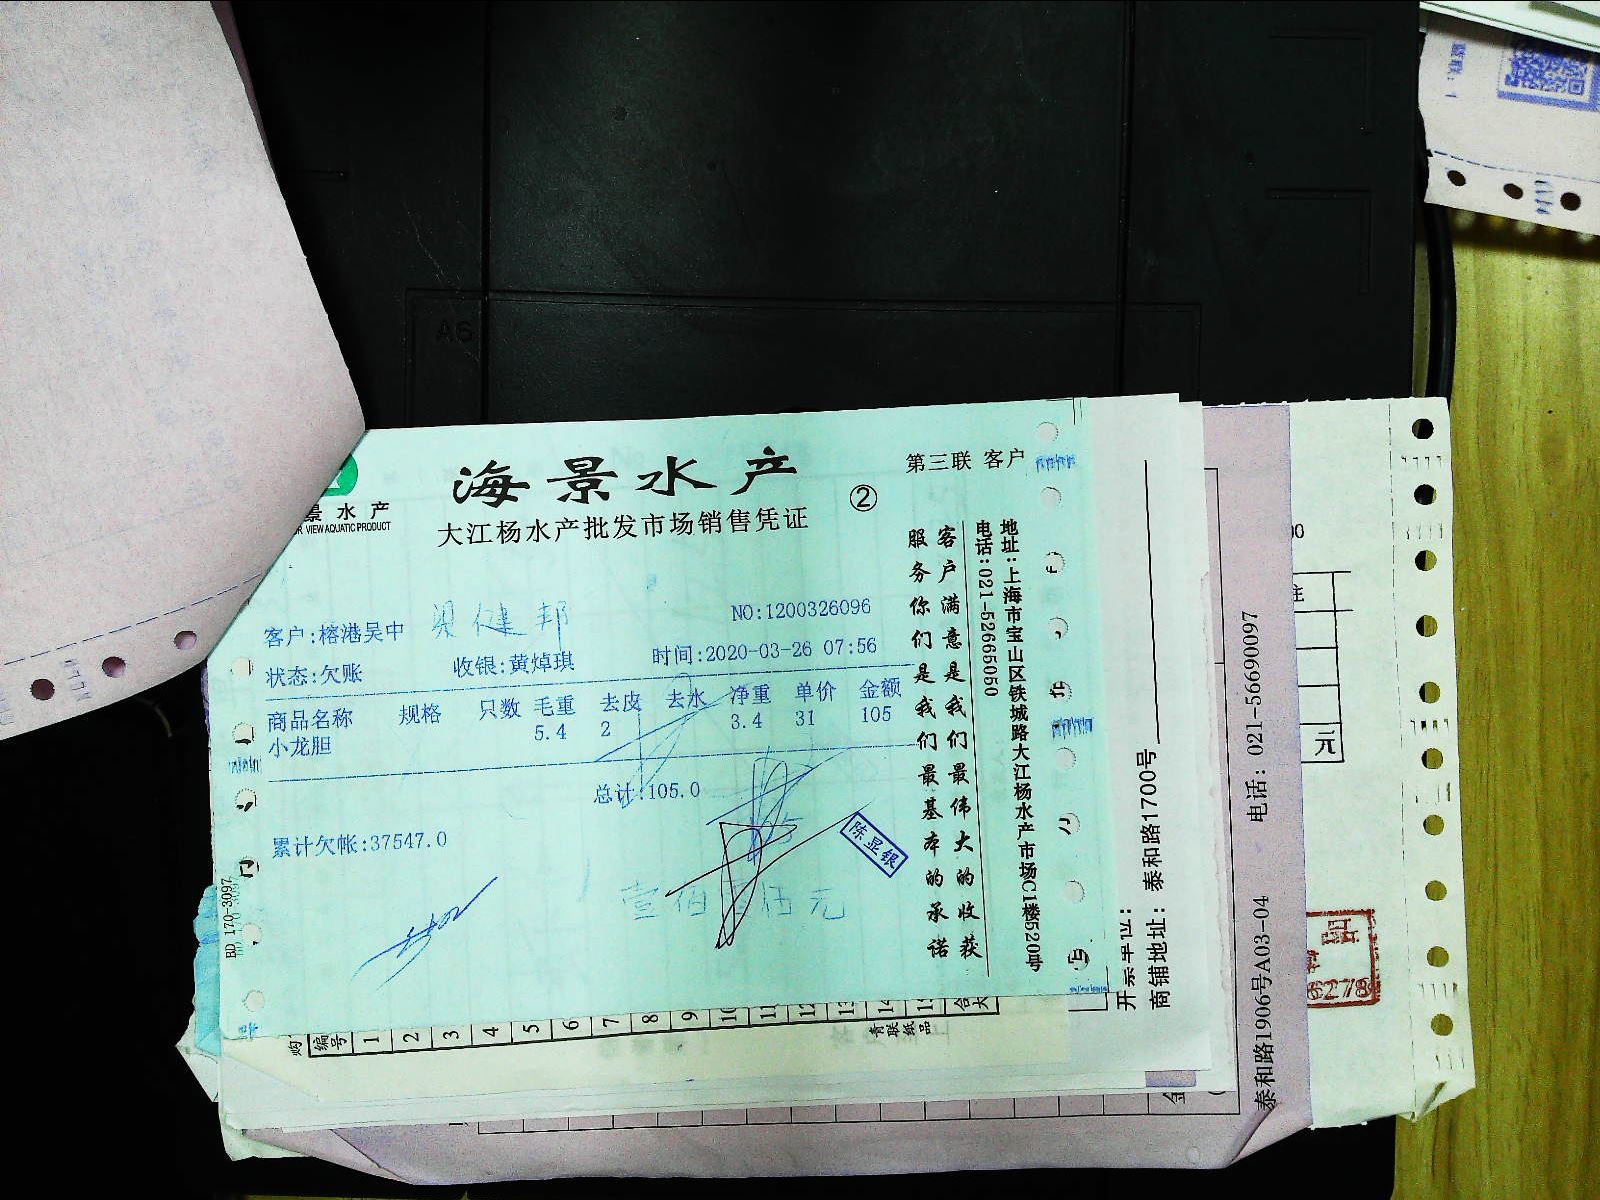 海景水产
大江杨水产批发市场销售凭证
②
第三联 客户
景水产
VIEW AQUATIC PRODUCT
客户:榕港吴中
健邦
NO:1200326096
状态:欠账
收银:黄焯琪
时间:2020-03-26 07:56
商品名称 规格 只数 毛重 去皮 去水 净重 单价 金额
小龙胆 5.4 2 3.4 31 105
总计:105.0
累计欠帐:37547.0
壹佰 伍元
陈显银
客户满意是我们最伟大的收获
服务你们是我们最基本的承诺
地址:上海市宝山区铁城路大江杨水产市场C1楼520号
电话:021-52665050
BD 170-3097
编号 1 2 3 4 5 6 7 8 9 10 11 12 13 14
青联纸品
商铺地址: 泰和路1700号
泰和路1906号A03-04 电话: 021-56690097
元
6278
A6